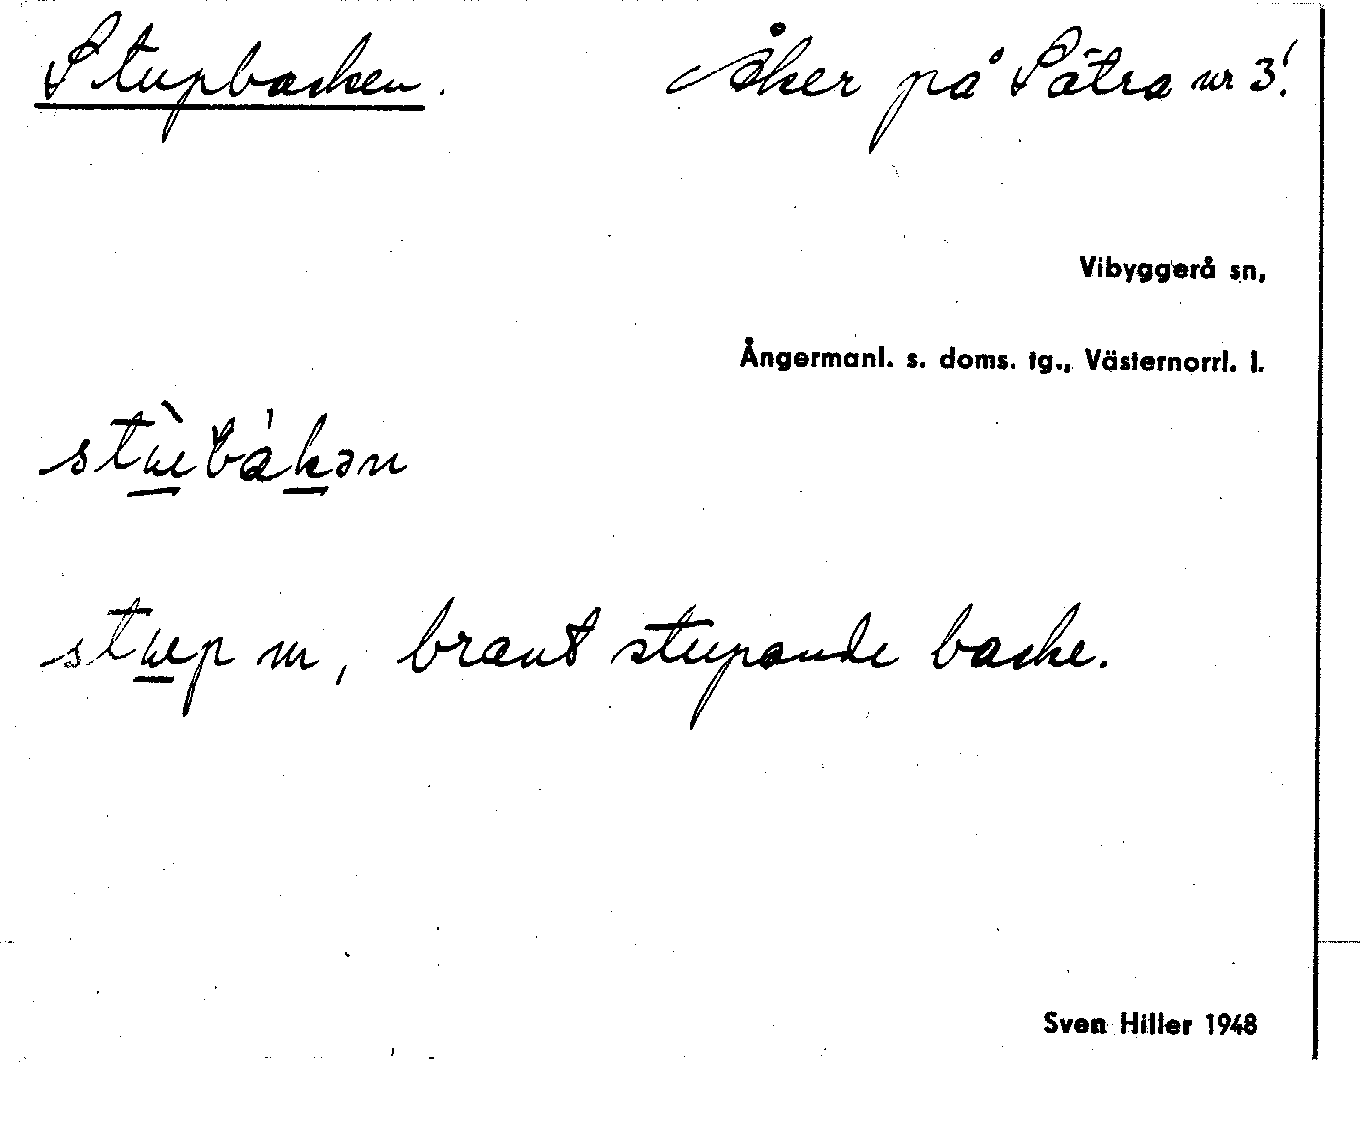 Stupbacken. Åker på Sätra nr 3!
Vibyggerå sn,
Ångermanl. s. doms. tg., Västernorrl. l.
stu̲e̲p m, brant stupande backe.
Sven Hiller 1948